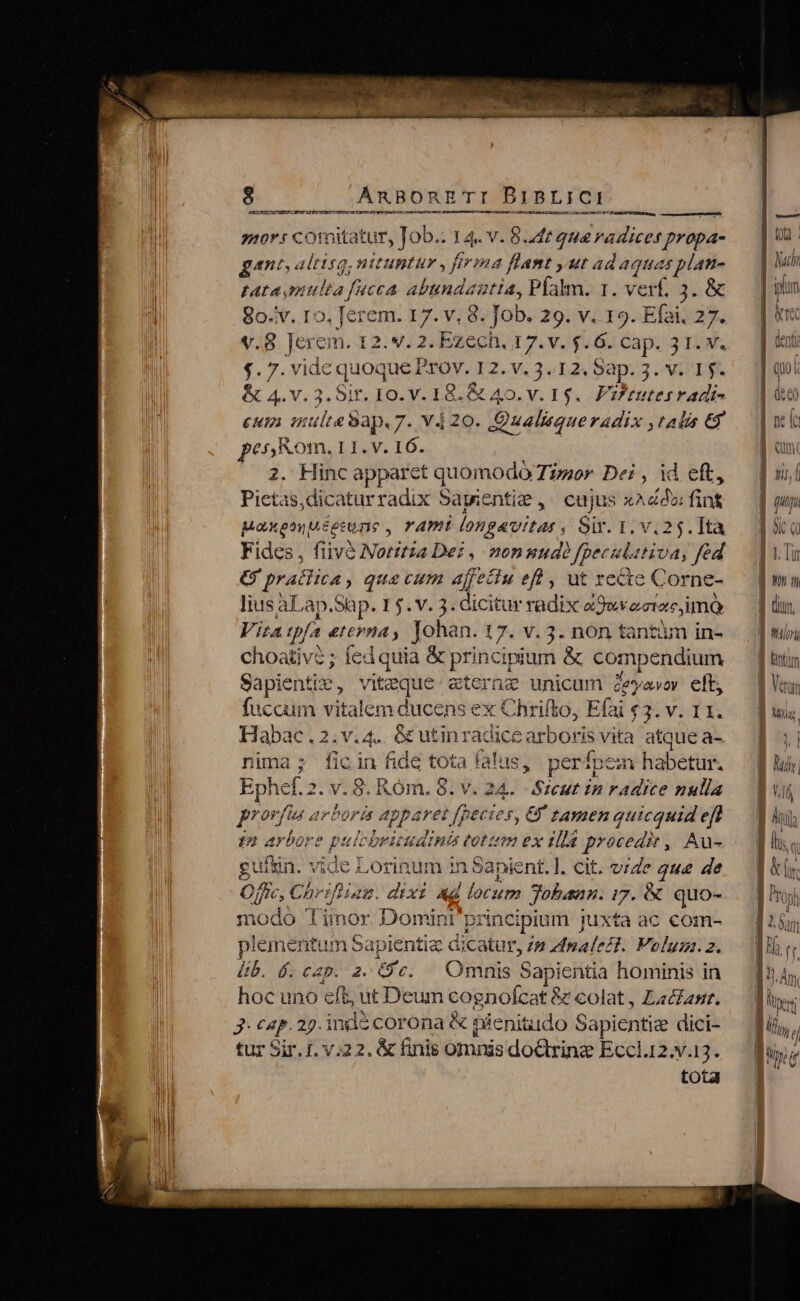 8 ARBORETI BIBLICI
mors comitatur, Job.. 14. v. 8. At quæ radices propa-
gant, altisq; nituntur, firma stant, ut ad aquas plan-
tata, multa succa abundantia, Psalm. 1. vers. 3. &
80. v. 10. Jerem. 17. v. 8. Job. 29. v. 19. Esai. 27.
v. 8 Jerem. 12. v. 2. Ezech. 17. v. 5. 6. cap. 31. v.
5. 7. vide quoque Prov. 12. v. 3. 12. Sap. 3. v. 15.
& 4. v. 3. Sir. 10. v. 18. & 40. v. 15. Virtutes radi-
cum multæ Sap. 7. v. 20. Qualisque radix, talis &
pes, Rom. 11. v. 16.
2. Hinc apparet quomodò Timor Dei, id est,
Pietas, dicatur radix Sapientiæ, cujus κλάδοι sint
μακροημέρευσις, rami longævitas, Sir. 1. v. 25. Ita
Fides, sivè Notitia Dei, non nudè speculativa, sed
& practica, quæ cum affectu est, ut rectè Corne-
lius à Lap. Sap. 15. v. 3. dicitur radix ἀθανασίας, imò
Vita ipsa æterna, Johan. 17. v. 3. non tantùm in-
choativè; sed quia & principium & compendium
Sapientiæ, vitæque æternæ unicum ὄργανον est,
succum vitalem ducens ex Christo, Esai 53. v. 11.
Habac. 2. v. 4. & ut in radice arboris vita atque a-
nima; sic in fide tota salus, per spem habetur.
Ephes. 2. v. 8. Rom. 8. v. 24. Sicut in radice nulla
prorsus arboris apparet species, & tamen quicquid est
in arbore pulchritudinis totum ex illâ procedit, Au-
gustin. vide Lorinum in Sapient. l. cit. vide quæ de
Offic. Christian. dixi ad locum Johann. 17. & quo-
modò Timor Domini principium juxta ac com-
plementum Sapientiæ dicatur, in Analect. Volum. 2.
lib. 6. cap. 2. &c. Omnis Sapientia hominis in
hoc uno est, ut Deum cognoscat & colat, Lactant.
3. cap. 29. indè corona & plenitudo Sapientiæ dici-
tur Sir. 1. v. 22. & finis omnis doctrinæ Eccl. 12. v. 13.
tota